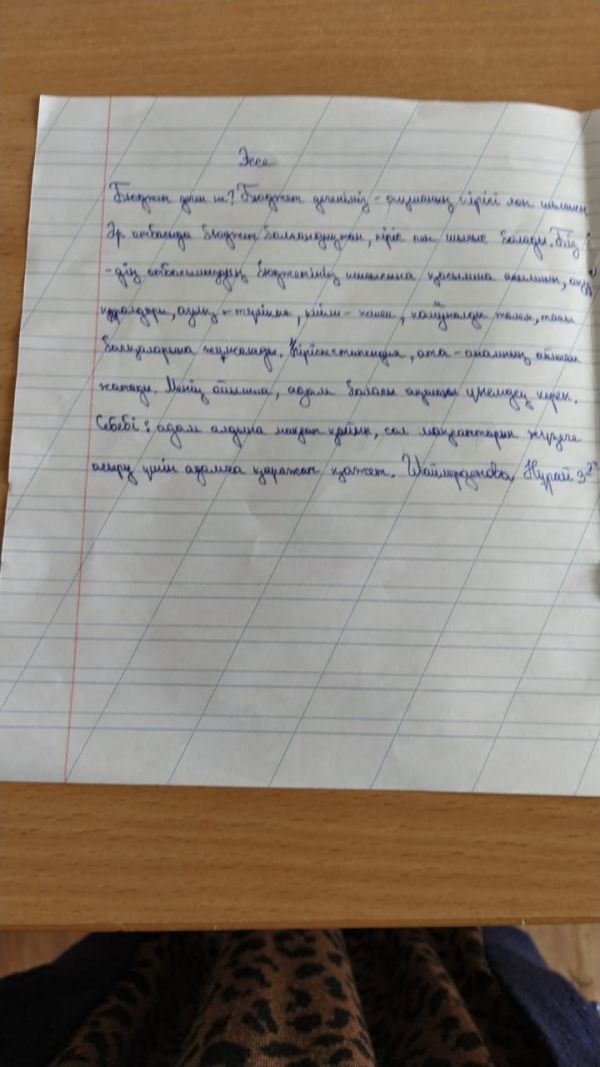 Эссе
Бюджет деген не? Бюджет дегеніміз - ақшаның кірісі мен шығысы.
Әр отбасыда бюджет болғандықтан, кіріс пен шығыс болады. Біз
- дің отбасымыздың бюджетінің шығысына қосымша
құралдары, азық - түлікке, киім - кешек, төлем, тағы
басқаларына жұмсалады. Кіріске стипендия, ата - анамның
жатады. Менің ойымша, адам баласы ақшаны үнемдеу керек.
Себебі: адам алдына мақсат қойып, сол мақсаттарын жүзеге
асыру үшін адамға қаражат қажет. Шаймерденова Нұрай 3 "